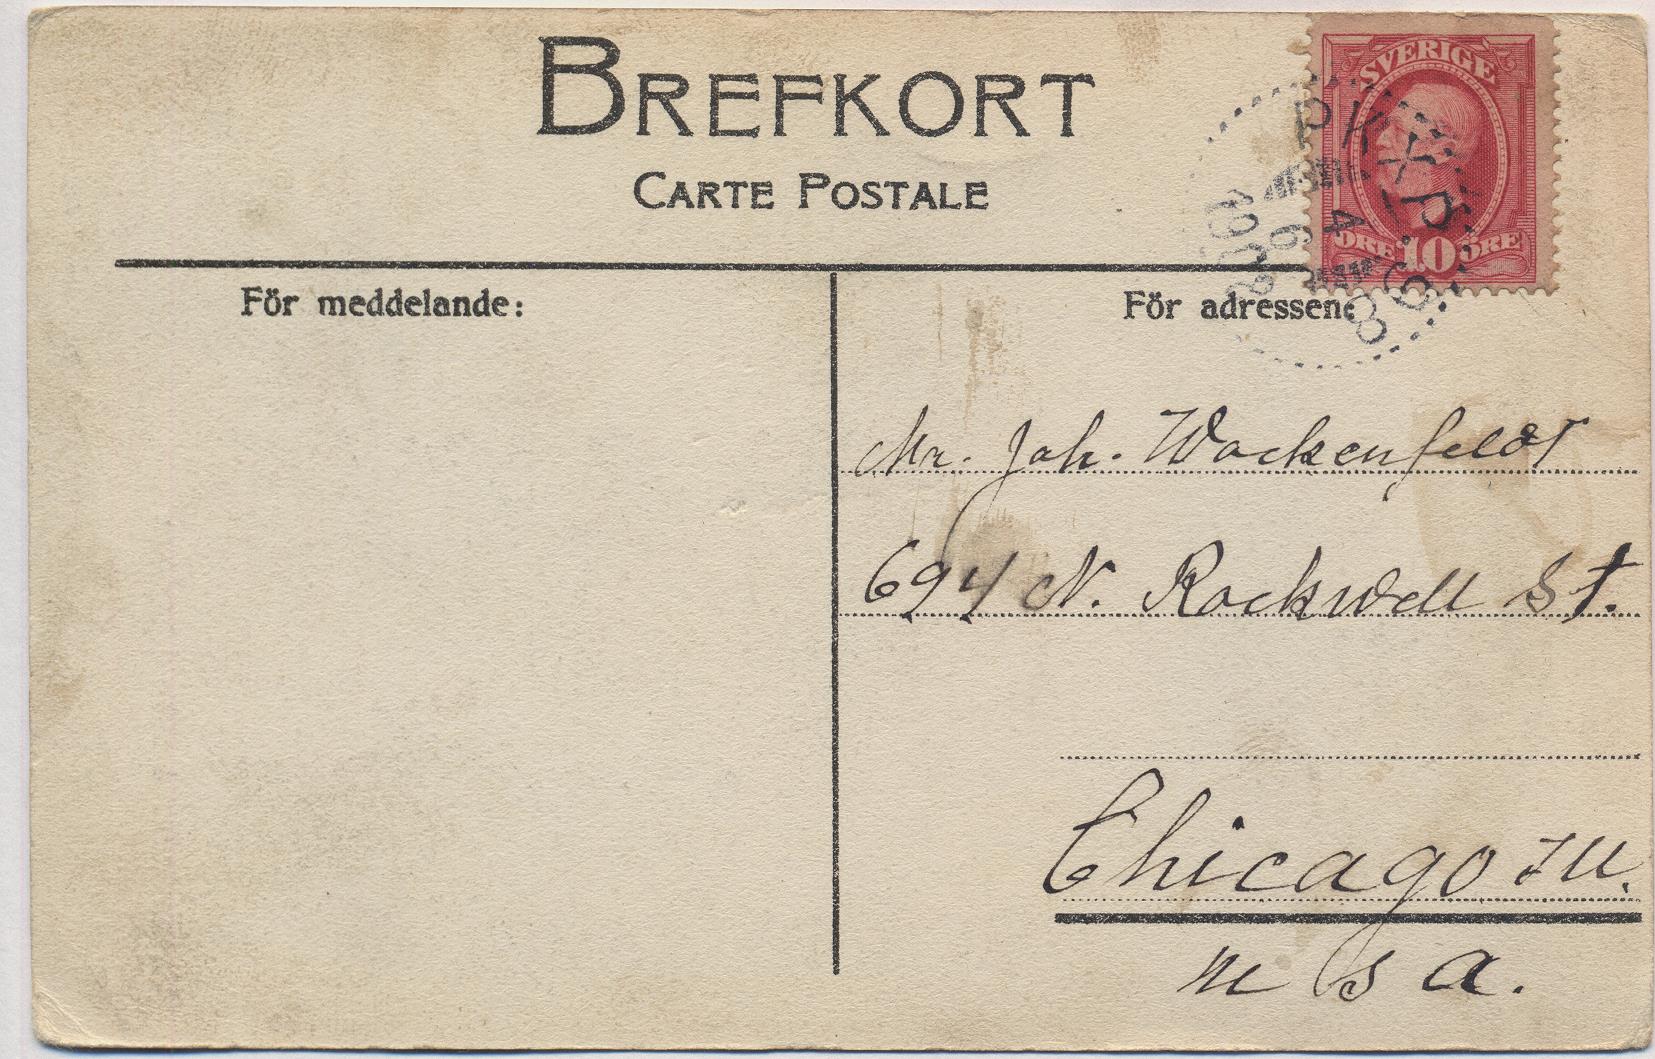 BREFKORT
CARTE POSTALE
SVERIGE
ÖRE 10 ÖRE
PKXP
86
4
6
För meddelande:
För adressen:
Mr. Joh. Wackenfeldt
694 N. Rockwell St.
Chicago Ill.
U S A.